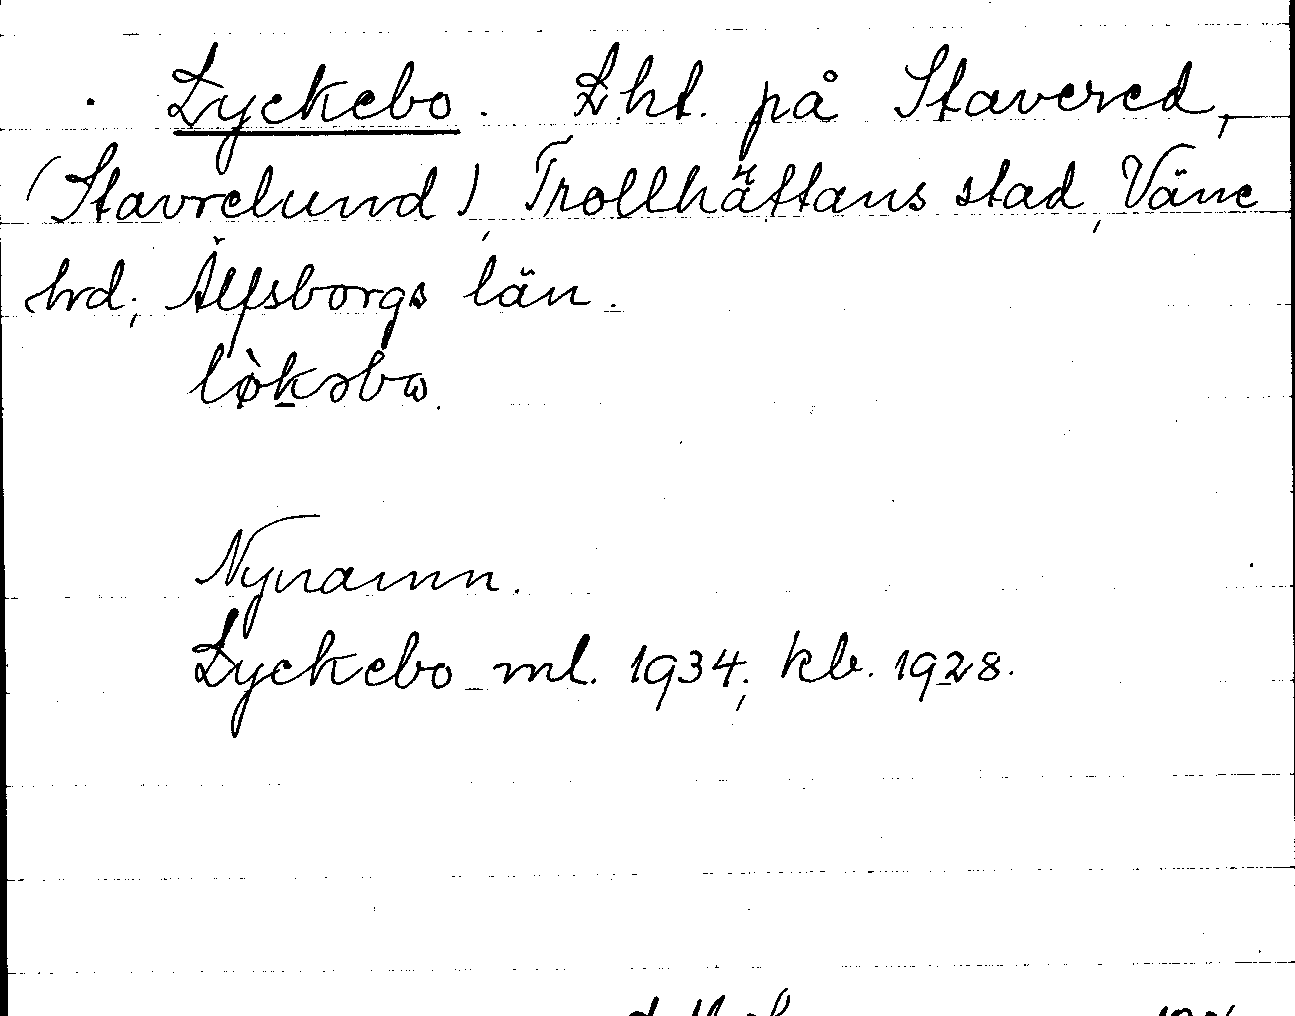 Lyckebo. Lht. på Stavered,
(Stavrelund), Trollhättans stad, Väne
hrd; Älfsborgs län.
lø̀kəbω.
Nynamn.
Lyckebo ml. 1934; kb. 1928.